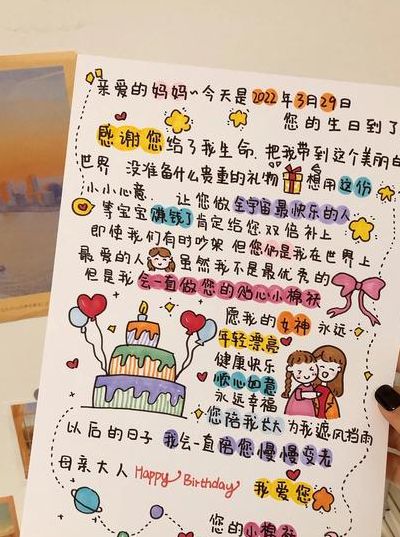 亲爱的妈妈~今天是2022年3月29日
您的生日到了
感谢您给了我生命,把我带到这个美丽的
世界 没准备什么贵重的礼物 想用这份
小小心意. 让您做全宇宙最快乐的人
等宝宝赚钱了肯定给您双倍补上
即使我们有时吵架 但您们是我在世界上
最爱的人 虽然我不是最优秀的
但是我会一直做您的贴心小棉袄
愿我的女神永远
年轻漂亮
健康快乐
顺心如意
永远幸福
您陪我长大 为我遮风挡雨
以后的日子 我会一直陪您慢慢变老
母亲大人 Happy Birthday
我爱您
您的小棉袄